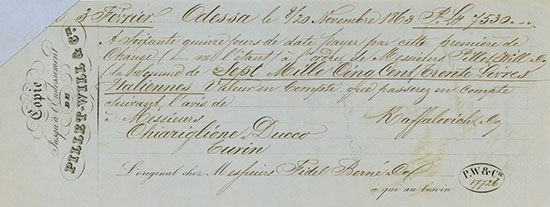 3 Février. Odessa le 8/20 Novembre 1863 P. Lt 7530
A soixante quinze jours de date payez par cette première de
Change à l'ordre de Messieurs Pillet Will & Co
la somme de Sept Mille Cinq Cent Trente Livres
Italiennes Valeur en Compte que passerez en compte
suivant l'avis de
à Messieurs Raffalovich & Co
Chiariglione, Ducco
Turin
L'original chez Messieurs Fidel Berné & Co
a que au besoin
Copie
Jusqu'à l'Endossement
DE
PILLET-WILL & Cie
P.W & Cie
17726